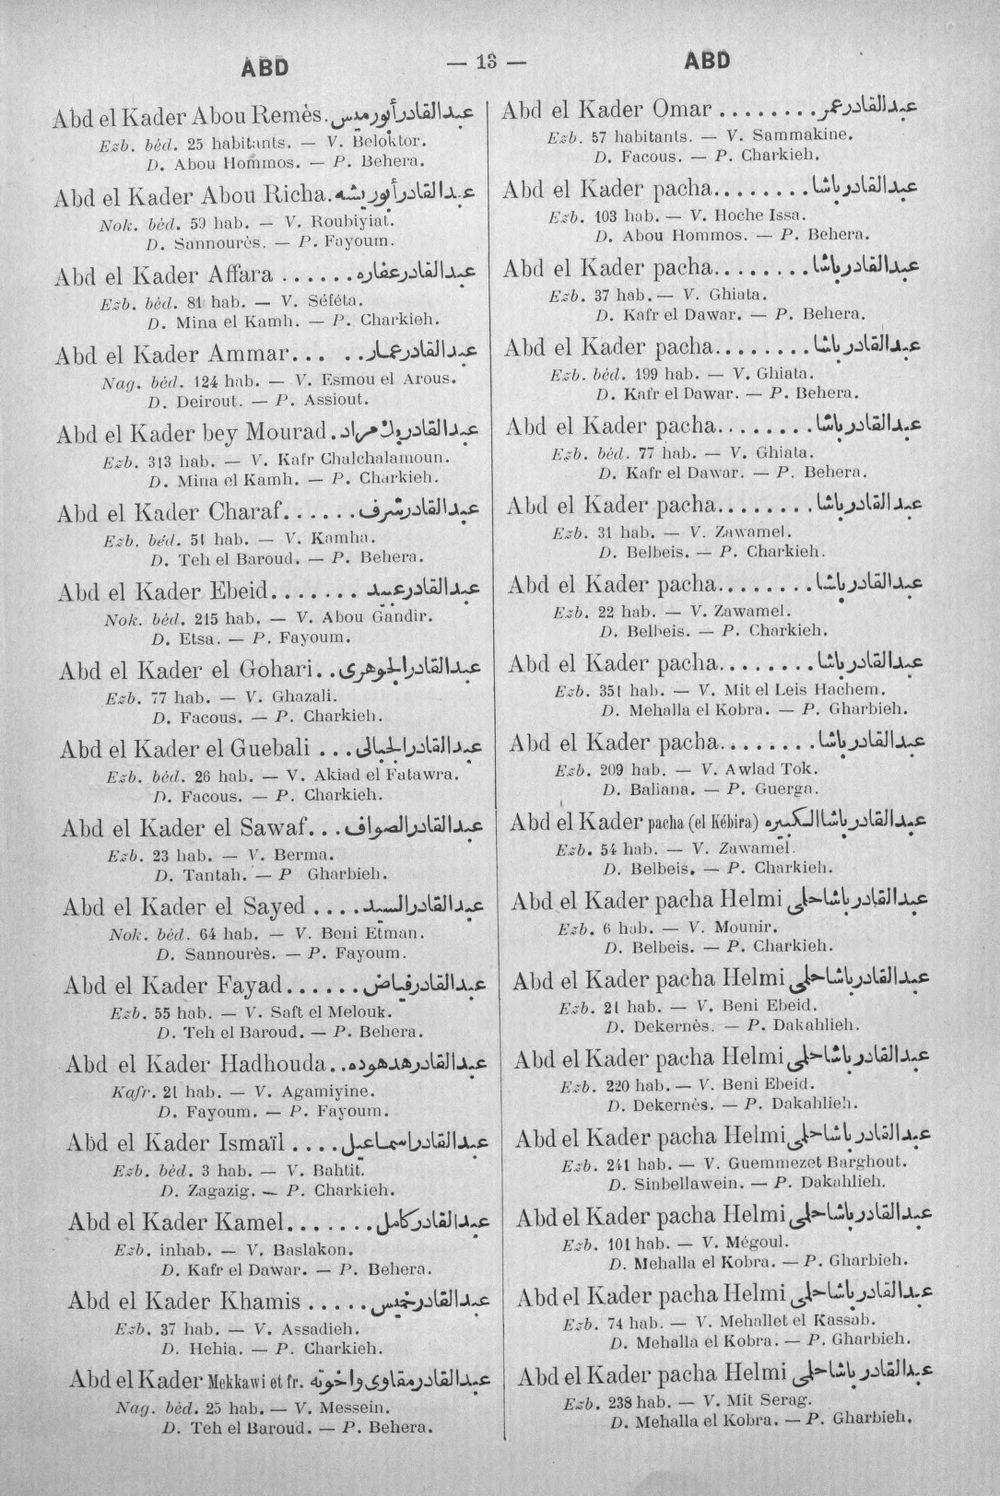 ABD
— 13 —
ABD
Abd el Kader Abou Remès. عبد القادر أبو رميس
Ezb. béd. 25 habitants. — V. Beloktor.
D. Abou Hommos. — P. Behera.
Abd el Kader Abou Richa. عبد القادر أبو ريشه
Nok. béd. 59 hab. — V. Roubiyiat.
D. Sannourès. — P. Fayoum.
Abd el Kader Affara ...... عبد القادر عفاره
Ezb. béd. 81 hab. — V. Séféta.
D. Mina el Kamh. — P. Charkieh.
Abd el Kader Ammar... .. عبد القادر عمار
Nag. béd. 124 hab. — V. Esmou el Arous.
D. Deirout. — P. Assiout.
Abd el Kader bey Mourad. عبد القادر بك مراد
Ezb. 313 hab. — V. Kafr Chalchalamoun.
D. Mina el Kamh. — P. Charkieh.
Abd el Kader Charaf...... عبد القادر شرف
Ezb. béd. 51 hab. — V. Kamha.
D. Teh el Baroud. — P. Behera.
Abd el Kader Ebeid....... عبد القادر عبيد
Nok. béd. 215 hab. — V. Abou Gandir.
D. Etsa. — P. Fayoum.
Abd el Kader el Gohari.. عبد القادر الجوهرى
Ezb. 77 hab. — V. Ghazali.
D. Facous. — P. Charkieh.
Abd el Kader el Guebali ... عبد القادر الجبالى
Ezb. béd. 26 hab. — V. Akiad el Fatawra.
D. Facous. — P. Charkieh.
Abd el Kader el Sawaf... عبد القادر الصواف
Ezb. 23 hab. — V. Berma.
D. Tantah. — P Gharbieh.
Abd el Kader el Sayed .... عبد القادر السيد
Nok. béd. 64 hab. — V. Beni Etman.
D. Sannourès. — P. Fayoum.
Abd el Kader Fayad...... عبد القادر فياض
Ezb. 55 hab. — V. Saft el Melouk.
D. Teh el Baroud. — P. Behera.
Abd el Kader Hadhouda.. عبد القادر هدهوده
Kafr. 21 hab. — V. Agamiyine.
D. Fayoum. — P. Fayoum.
Abd el Kader Ismaïl .... عبد القادر اسماعيل
Ezb. béd. 3 hab. — V. Bahtit.
D. Zagazig. — P. Charkieh.
Abd el Kader Kamel....... عبد القادر كامل
Ezb. inhab. — V. Baslakon.
D. Kafr el Dawar. — P. Behera.
Abd el Kader Khamis ..... عبد القادر خميس
Ezb. 37 hab. — V. Assadieh.
D. Hehia. — P. Charkieh.
Abd el Kader Mekkawi et fr. عبد القادر مقاوى واخوته
Nag. béd. 25 hab. — V. Messein.
D. Teh el Baroud. — P. Behera.
Abd el Kader Omar ........ عبد القادر عمر
Ezb. 57 habitants. — V. Sammakine.
D. Facous. — P. Charkieh.
Abd el Kader pacha........ عبد القادر باشا
Ezb. 103 hab. — V. Hoche Issa.
D. Abou Hommos. — P. Behera.
Abd el Kader pacha........ عبد القادر باشا
Ezb. 37 hab. — V. Ghiata.
D. Kafr el Dawar. — P. Behera.
Abd el Kader pacha........ عبد القادر باشا
Ezb. béd. 199 hab. — V. Ghiata.
D. Kafr el Dawar. — P. Behera.
Abd el Kader pacha........ عبد القادر باشا
Ezb. béd. 77 hab. — V. Ghiata.
D. Kafr el Dawar. — P. Behera.
Abd el Kader pacha........ عبد القادر باشا
Ezb. 31 hab. — V. Zawamel.
D. Belbeis. — P. Charkieh.
Abd el Kader pacha........ عبد القادر باشا
Ezb. 22 hab. — V. Zawamel.
D. Belbeis. — P. Charkieh.
Abd el Kader pacha........ عبد القادر باشا
Ezb. 351 hab. — V. Mit el Leis Hachem.
D. Mehalla el Kobra. — P. Gharbieh.
Abd el Kader pacha........ عبد القادر باشا
Ezb. 209 hab. — V. Awlad Tok.
D. Baliana. — P. Guerga.
Abd el Kader pacha (el Kébira) عبد القادر باشا الكبيره
Ezb. 54 hab. — V. Zawamel.
D. Belbeis. — P. Charkieh.
Abd el Kader pacha Helmi عبد القادر باشا حلمى
Ezb. 6 hab. — V. Mounir.
D. Belbeis. — P. Charkieh.
Abd el Kader pacha Helmi عبد القادر باشا حلمى
Ezb. 21 hab. — V. Beni Ebeid.
D. Dekernès. — P. Dakahlieh.
Abd el Kader pacha Helmi عبد القادر باشا حلمى
Ezb. 220 hab. — V. Beni Ebeid.
D. Dekernès. — P. Dakahlieh.
Abd el Kader pacha Helmi عبد القادر باشا حلمى
Ezb. 241 hab. — V. Guemmezet Barghout.
D. Sinbellawein. — P. Dakahlieh.
Abd el Kader pacha Helmi عبد القادر باشا حلمى
Ezb. 101 hab. — V. Mégoul.
D. Mehalla el Kobra. — P. Gharbieh.
Abd el Kader pacha Helmi عبد القادر باشا حلمى
Ezb. 74 hab. — V. Mehallet el Kassab.
D. Mehalla el Kobra. — P. Gharbieh.
Abd el Kader pacha Helmi عبد القادر باشا حلمى
Ezb. 238 hab. — V. Mit Serag.
D. Mehalla el Kobra. — P. Gharbieh.